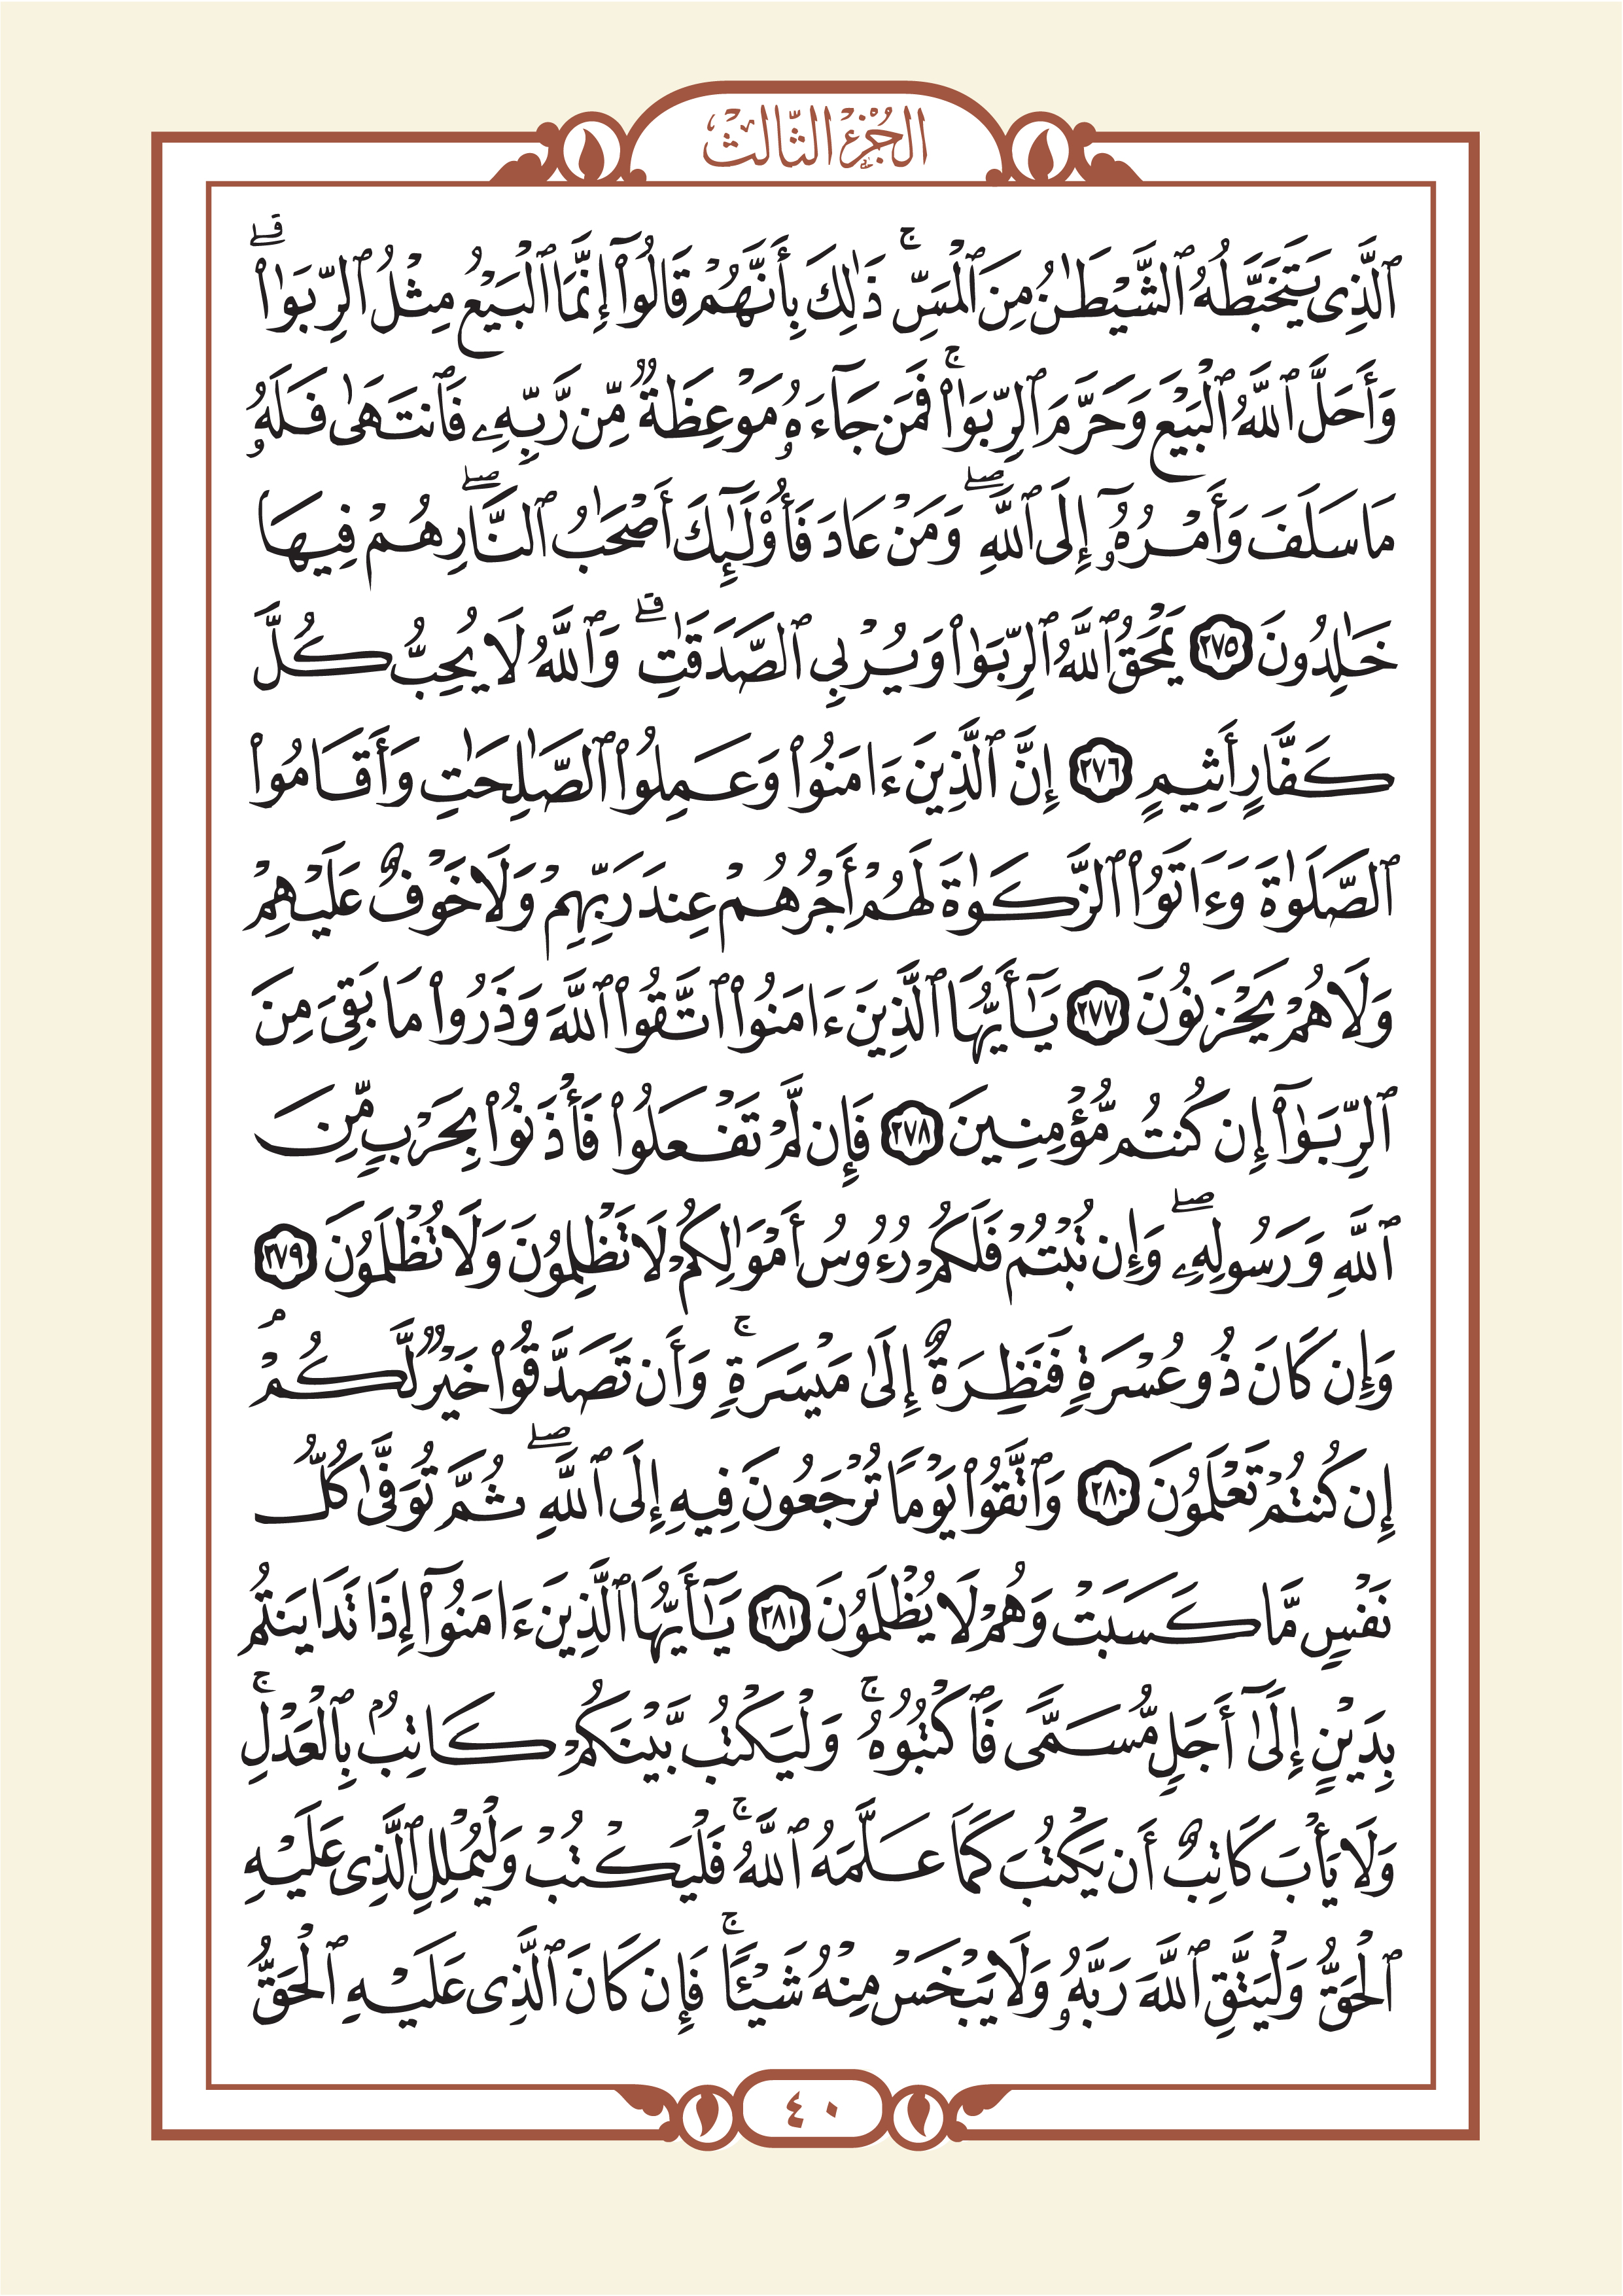 الجُزْءُ الثَّالِثُ
ٱلَّذِى يَتَخَبَّطُهُ ٱلشَّيْطَـٰنُ مِنَ ٱلْمَسِّ ۚ ذَٰلِكَ بِأَنَّهُمْ قَالُوٓا۟ إِنَّمَا ٱلْبَيْعُ مِثْلُ ٱلرِّبَوٰا۟ ۗ
وَأَحَلَّ ٱللَّهُ ٱلْبَيْعَ وَحَرَّمَ ٱلرِّبَوٰا۟ ۚ فَمَن جَآءَهُۥ مَوْعِظَةٌ مِّن رَّبِّهِۦ فَٱنتَهَىٰ فَلَهُۥ
مَا سَلَفَ وَأَمْرُهُۥٓ إِلَى ٱللَّهِ ۖ وَمَنْ عَادَ فَأُو۟لَـٰٓئِكَ أَصْحَـٰبُ ٱلنَّارِ ۖ هُمْ فِيهَا
خَـٰلِدُونَ ٢٧٥ يَمْحَقُ ٱللَّهُ ٱلرِّبَوٰا۟ وَيُرْبِى ٱلصَّدَقَـٰتِ ۗ وَٱللَّهُ لَا يُحِبُّ كُلَّ
كَفَّارٍ أَثِيمٍ ٢٧٦ إِنَّ ٱلَّذِينَ ءَامَنُوا۟ وَعَمِلُوا۟ ٱلصَّـٰلِحَـٰتِ وَأَقَامُوا۟
ٱلصَّلَوٰةَ وَءَاتَوُا۟ ٱلزَّكَوٰةَ لَهُمْ أَجْرُهُمْ عِندَ رَبِّهِمْ وَلَا خَوْفٌ عَلَيْهِمْ
وَلَا هُمْ يَحْزَنُونَ ٢٧٧ يَـٰٓأَيُّهَا ٱلَّذِينَ ءَامَنُوا۟ ٱتَّقُوا۟ ٱللَّهَ وَذَرُوا۟ مَا بَقِىَ مِنَ
ٱلرِّبَوٰٓا۟ إِن كُنتُم مُّؤْمِنِينَ ٢٧٨ فَإِن لَّمْ تَفْعَلُوا۟ فَأْذَنُوا۟ بِحَرْبٍ مِّنَ
ٱللَّهِ وَرَسُولِهِۦ ۖ وَإِن تُبْتُمْ فَلَكُمْ رُءُوسُ أَمْوَٰلِكُمْ لَا تَظْلِمُونَ وَلَا تُظْلَمُونَ ٢٧٩
وَإِن كَانَ ذُو عُسْرَةٍ فَنَظِرَةٌ إِلَىٰ مَيْسَرَةٍ ۚ وَأَن تَصَدَّقُوا۟ خَيْرٌ لَّكُمْ ۖ
إِن كُنتُمْ تَعْلَمُونَ ٢٨٠ وَٱتَّقُوا۟ يَوْمًا تُرْجَعُونَ فِيهِ إِلَى ٱللَّهِ ۖ ثُمَّ تُوَفَّىٰ كُلُّ
نَفْسٍ مَّا كَسَبَتْ وَهُمْ لَا يُظْلَمُونَ ٢٨١ يَـٰٓأَيُّهَا ٱلَّذِينَ ءَامَنُوٓا۟ إِذَا تَدَايَنتُم
بِدَيْنٍ إِلَىٰٓ أَجَلٍ مُّسَمًّى فَٱكْتُبُوهُ ۚ وَلْيَكْتُب بَّيْنَكُمْ كَاتِبٌۢ بِٱلْعَدْلِ ۚ
وَلَا يَأْبَ كَاتِبٌ أَن يَكْتُبَ كَمَا عَلَّمَهُ ٱللَّهُ ۚ فَلْيَكْتُبْ وَلْيُمْلِلِ ٱلَّذِى عَلَيْهِ
ٱلْحَقُّ وَلْيَتَّقِ ٱللَّهَ رَبَّهُۥ وَلَا يَبْخَسْ مِنْهُ شَيْـًٔا ۚ فَإِن كَانَ ٱلَّذِى عَلَيْهِ ٱلْحَقُّ
٤٠